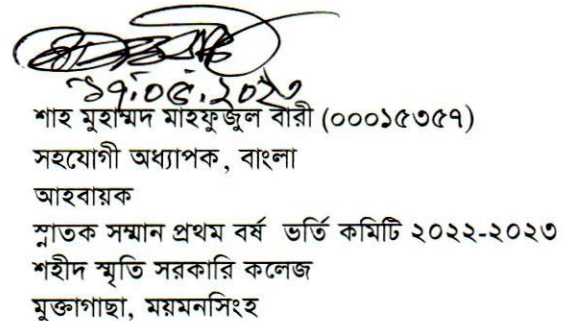 ১৭.০৫.২০২৩
শাহ মুহাম্মদ মাহফুজুল বারী (০০০১৫৩৫৭)
সহযোগী অধ্যাপক, বাংলা
আহবায়ক
স্নাতক সম্মান প্রথম বর্ষ ভর্তি কমিটি ২০২২-২০২৩
শহীদ স্মৃতি সরকারি কলেজ
মুক্তাগাছা, ময়মনসিংহ